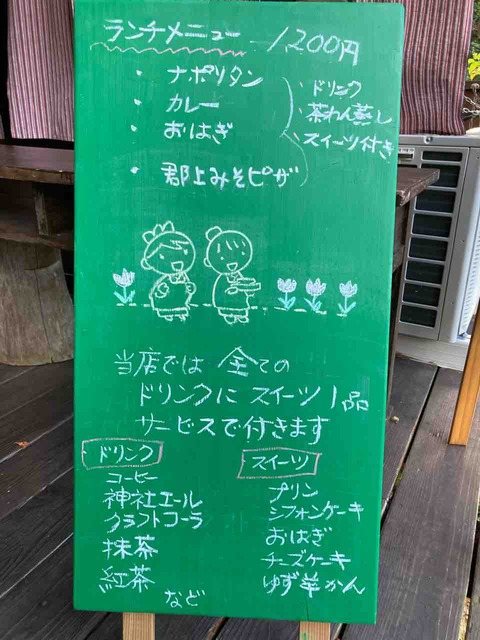 ランチメニュー 1200円
・ナポリタン
・カレー
・おはぎ
・郡上みそピザ
ドリンク
茶わん蒸し
スイーツ付き
当店では 全ての
ドリンクに スイーツ1品
サービスで付きます
ドリンク
コーヒー
神社エール
クラフトコーラ
抹茶
紅茶
など
スイーツ
プリン
シフォンケーキ
おはぎ
チーズケーキ
ゆず羊かん